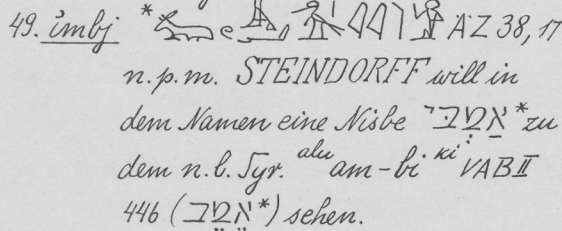 49. ı͗mbj * ÄZ 38, 17
n. p. m. STEINDORFF will in
dem Namen eine Nisbe אַמְבִּי* zu
dem n. l. Syr. alu am-bi ki VAB II
446 (אמבי*) sehen.